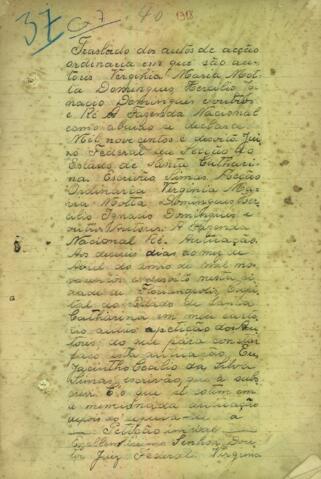 37 Cg 7. 40 1918
Traslado dos autos de acção
ordinaria em que são au-
tores Virginia Maria Mot-
ta Domingues Heraclio Ig-
nacio Domingues e outros
e Ré A Fazenda Nacional
como abaixo se declara.
Mil novecentos e dezoito. Jui-
zo Federal na Secção do
Estado de Santa Cathari-
na. Escrivão Simas. Acção
Ordinaria. Virginia Ma-
ria Motta Domingues He-
raclio Ignacio Domingues e
outros Autores. A Fazenda
Nacional Ré. Autuação.
Aos dias do mez de
Abril do anno de mil no-
vecentos e dezoito nesta ci-
dade de Florianopolis Capi-
tal do Estado de Santa
Catharina em meu carto-
rio autúo a petição dos Au-
tores do que para constar
faço esta autuação. Eu,
Jacintho Cecilio da Silva
Simas, escrivão, que a subs-
crevi. E o que se contem em
a mencionada autuação
depois do que a
Petição inicial
Excellentissimo Senhor Dou-
tor Juiz Federal. Virginia